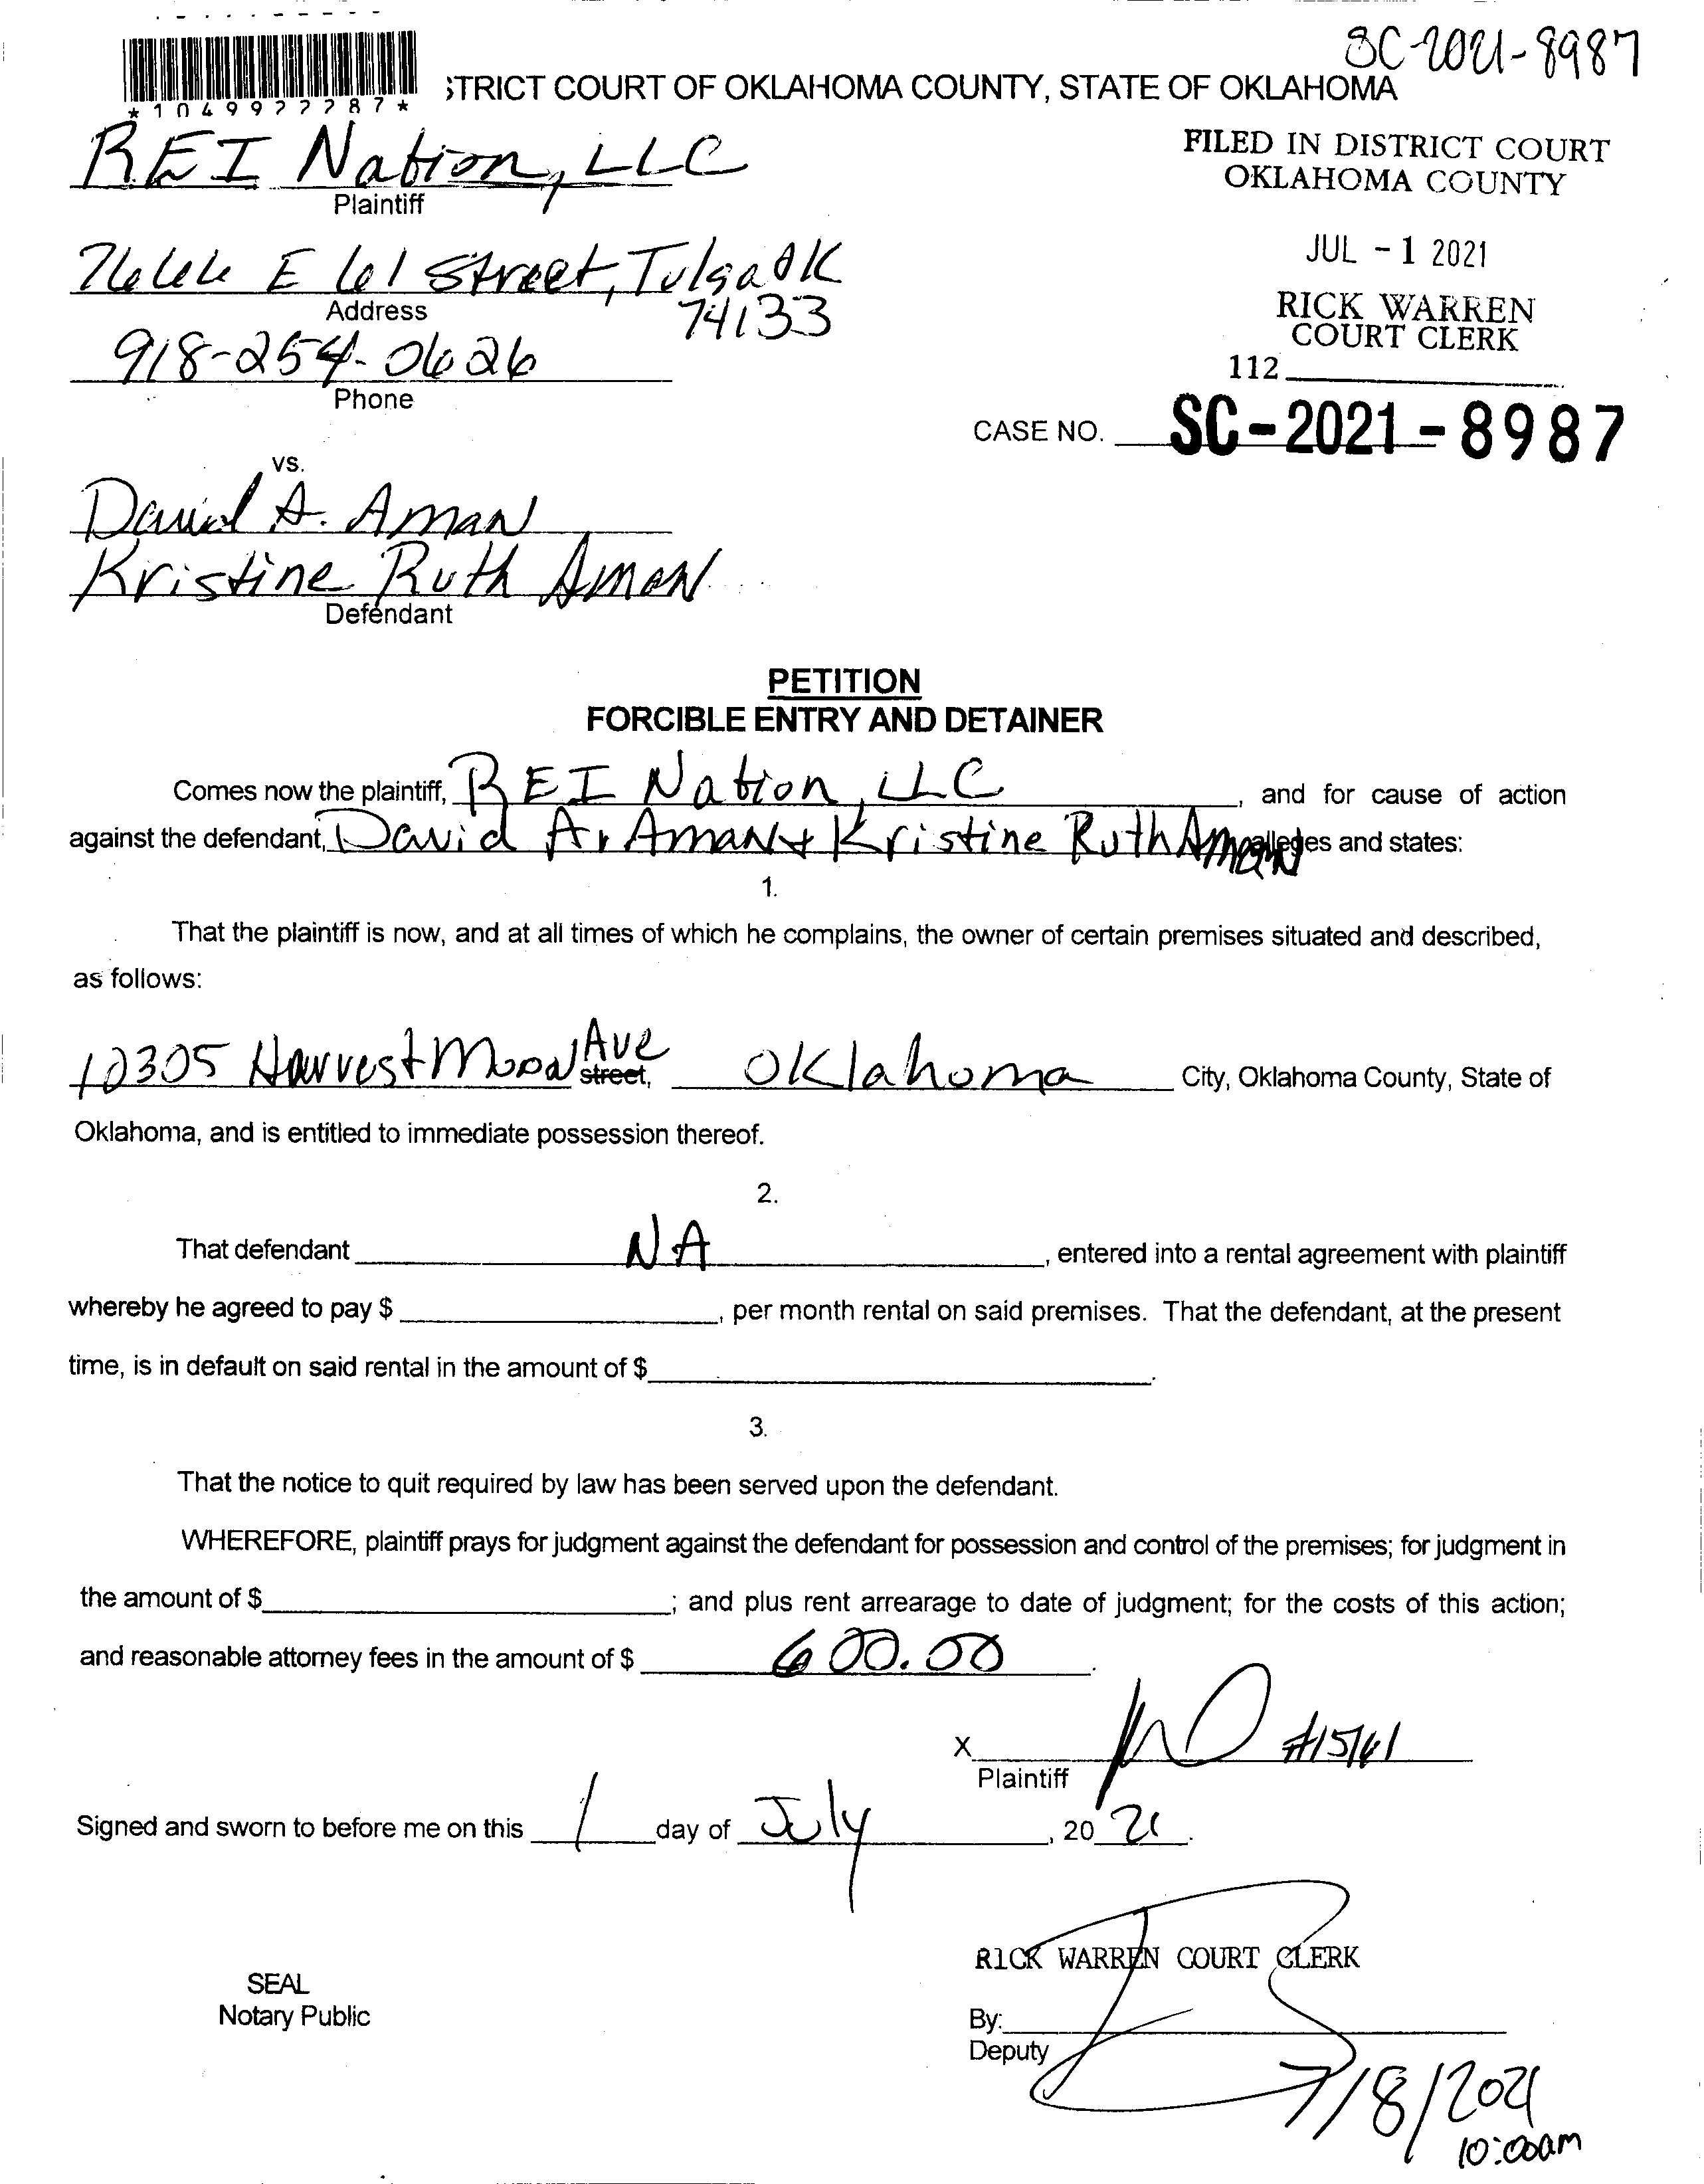 SC-2021-8987
*1049977787*
STRICT COURT OF OKLAHOMA COUNTY, STATE OF OKLAHOMA
REI Nation, LLC
Plaintiff
FILED IN DISTRICT COURT
OKLAHOMA COUNTY
JUL - 1 2021
RICK WARREN
COURT CLERK
112
7666 E 61 Street, Tulsa OK
74133
Address
918-254-0626
Phone
CASE NO. SC-2021-8987
vs.
David A. Aman
Kristine Ruth Aman
Defendant
PETITION
FORCIBLE ENTRY AND DETAINER
Comes now the plaintiff, REI Nation, LLC, and for cause of action
against the defendant, David A. Aman & Kristine Ruth Aman alleges and states:
1.
That the plaintiff is now, and at all times of which he complains, the owner of certain premises situated and described,
as follows:
10305 Harvest Moon Ave street, Oklahoma City, Oklahoma County, State of
Oklahoma, and is entitled to immediate possession thereof.
2.
That defendant NA, entered into a rental agreement with plaintiff
whereby he agreed to pay $, per month rental on said premises. That the defendant, at the present
time, is in default on said rental in the amount of $.
3.
That the notice to quit required by law has been served upon the defendant.
WHEREFORE, plaintiff prays for judgment against the defendant for possession and control of the premises; for judgment in
the amount of $; and plus rent arrearage to date of judgment; for the costs of this action;
and reasonable attorney fees in the amount of $ 600.00.
X #15161
Plaintiff
Signed and sworn to before me on this 1 day of July, 20 21.
RICK WARREN COURT CLERK
SEAL
Notary Public
By:
Deputy
7/8/2021
10:00am